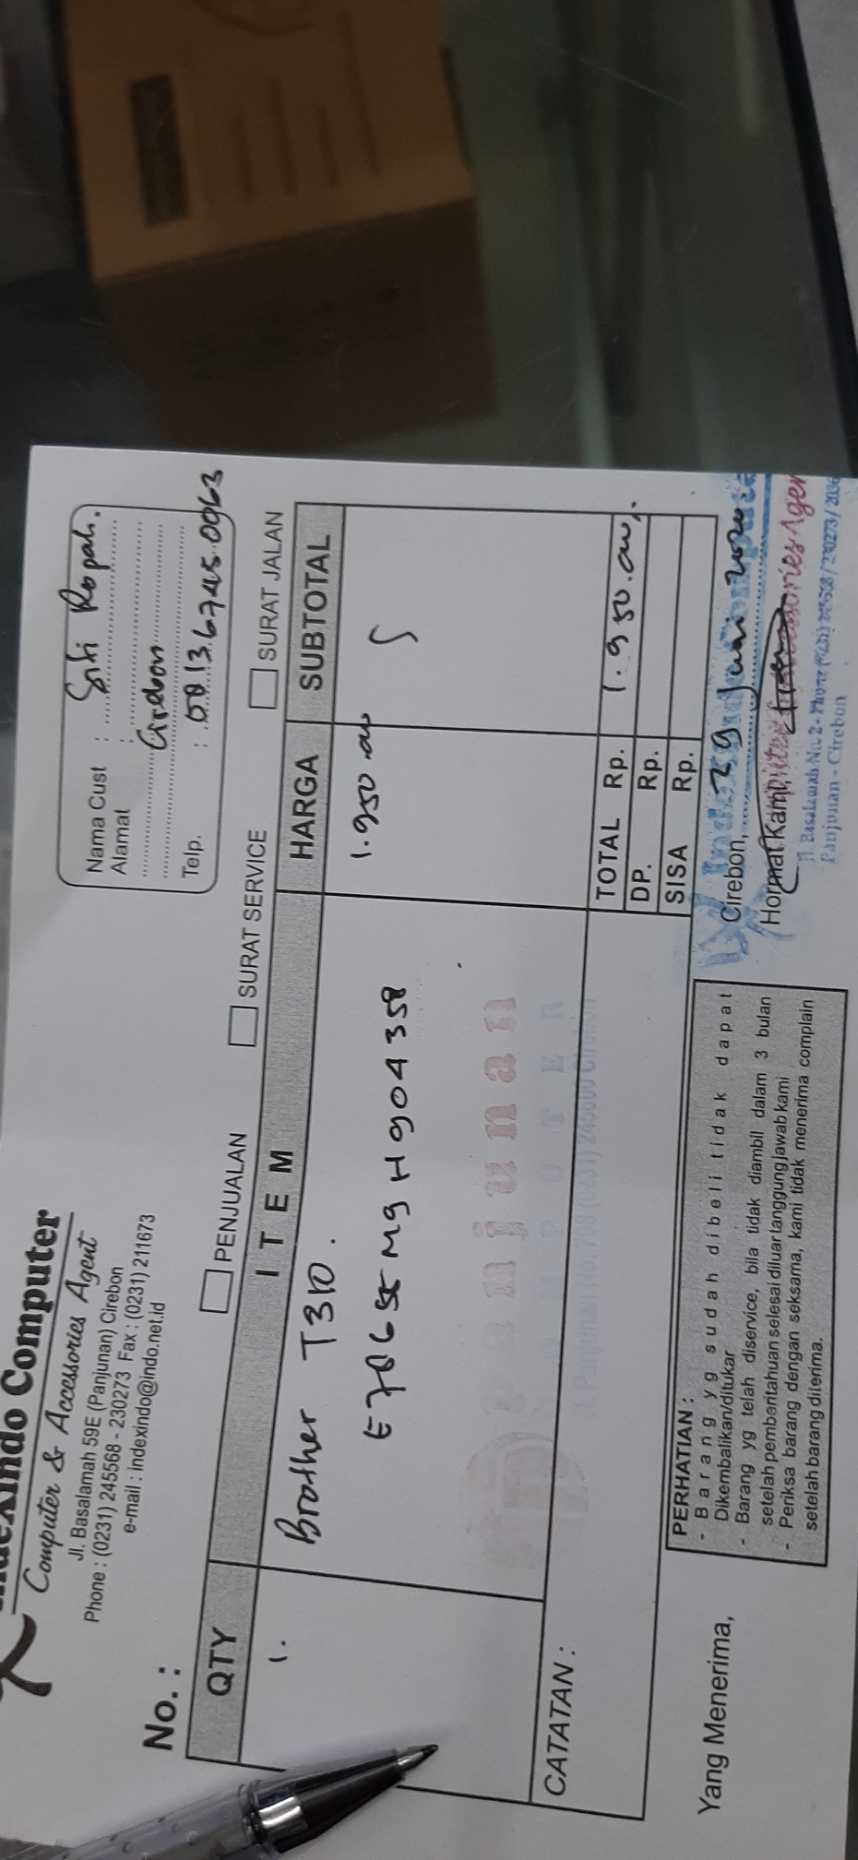 Indexindo Computer
Computer & Accessories Agent
Jl. Basalamah 59E (Panjunan) Cirebon
Phone : (0231) 245568 - 230273 Fax : (0231) 211673
e-mail : indexindo@indo.net.id
Nama Cust : Siti Ropah.
Alamat :
Cirebon
Telp. :
No. :
PENJUALAN SURAT SERVICE SURAT JALAN
QTY ITEM HARGA SUBTOTAL
1. Brother T310. 1.950.000
CATATAN :
TOTAL Rp. 1.950.000,-
DP. Rp.
SISA Rp.
PERHATIAN :
- Barang yg sudah dibeli tidak dapat
Dikembalikan/ditukar
- Barang yg telah diservice, bila tidak diambil dalam 3 bulan
setelah pemberitahuan selesai diluar tanggung jawab kami
- Periksa barang dengan seksama, kami tidak menerima complain
setelah barang diterima.
Yang Menerima,
Cirebon, 29 Juni 2020
Hormat Kami,
Panjunan - Cirebon